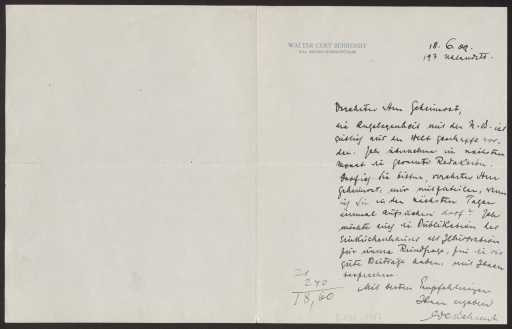 WALTER CURT BEHRENDT
18. 6. 09.
Verehrter Herr Geheimrat,
die Angelegenheit mit der N-B- ist
gütlich aus der Welt geschafft wor-
den. Ich übernehme im nächsten
Monat die gesamte Redaktion.
Darf ich Sie bitten, verehrter Herr
Geheimrat, mir mitzuteilen, wann
ich Sie in den nächsten Tagen
einmal aufsuchen darf? Ich
möchte auch die Publikation des
Einküchenhauses als Illustration
für unsere Rundfrage, für die wir
gute Beiträge haben, mit Ihnen
besprechen.
Mit besten Empfehlungen
Ihr ergebener
240
18,60